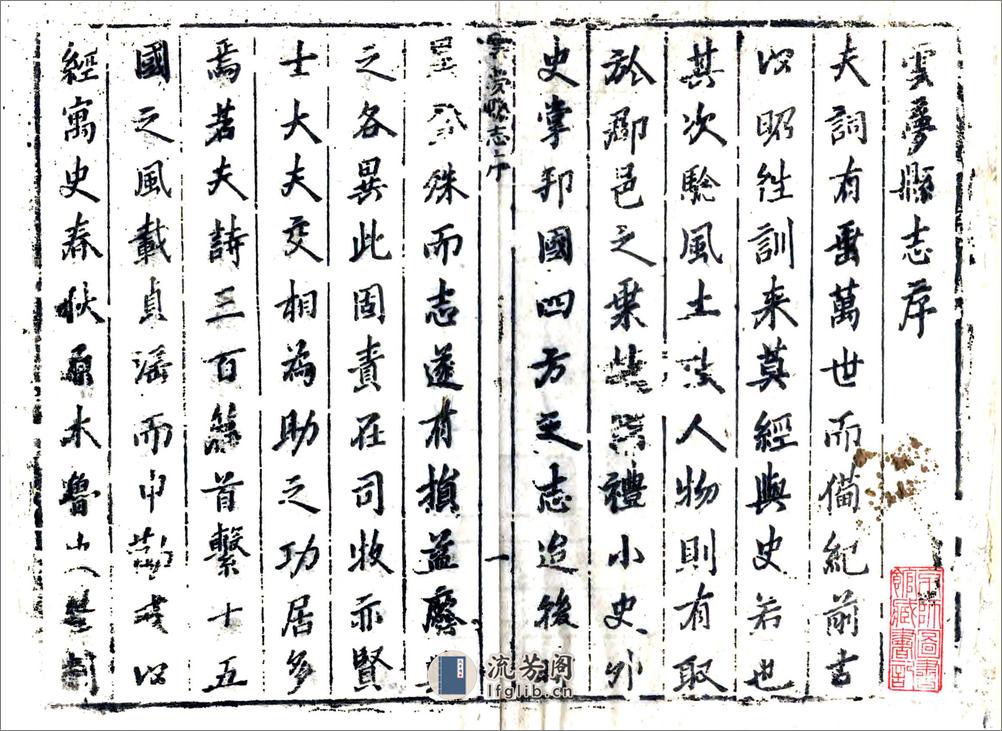 雲夢縣志序
夫詞有垂萬世而備紀前古
以昭往訓来莫經與史若也
其次驗風土   人物則有取
於郡邑之乗   禮小史外
史掌邦國四方之志迨後
雲夢縣志序
一
殊而志遂有損益
之各異此固責在司牧亦賢
士大夫交相為助之功居多
焉若夫詩三百篇首繫十五
國之風載貞滛而巾   以
經寓史春秋   本魯
流芳阁
lfglib.cn